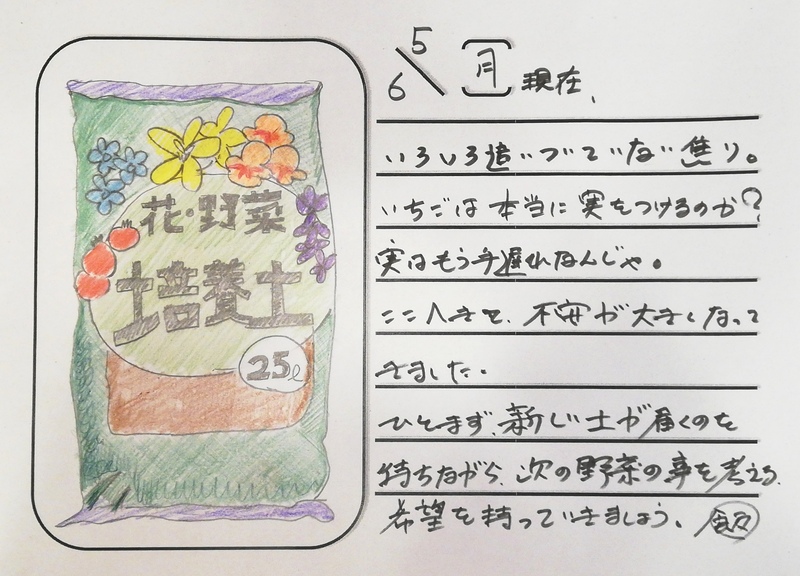 花・野菜
培養土
25ℓ
6/5 [月] 現在、
いろいろ追いついていない焦り。
いちごは本当に実をつけるのか?
実はもう手遅れなんじゃ。
ここへきて、不安が大きくなって
きました。
ひとまず、新しい土が届くのを
待ちながら、次の野菜の事を考える。
希望を持っていきましょう。